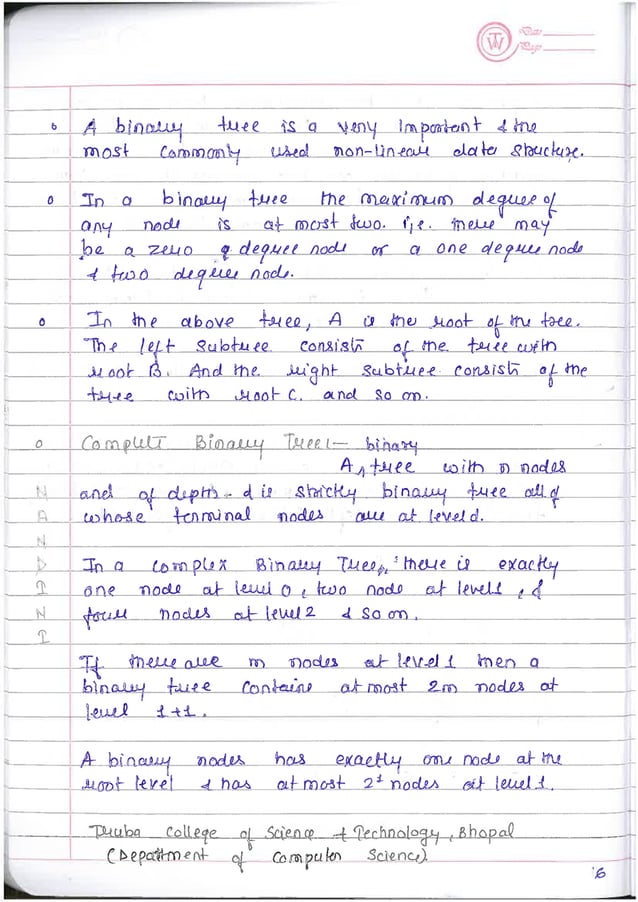 Date
Page
TW
o A binary tree is a very important & the
most commonly used non-linear data structure.
o In a binary tree the maximum degree of
any node is at most two. i,e. there may
be a zero degree node or a one degree node
& two degree node.
o In the above tree, A is the root of the tree.
The left subtree consists of the tree with
root B. And the right subtree consists of the
tree with root C. and so on.
o Complete Binary Tree:- binary
A ^ tree with n nodes
and of depth-d is strickly binary tree all of
whose terminal nodes are at level d.
In a complex Binary Tree, there is exactly
one node at level 0, two node at level 1, &
four nodes at level 2 & so on.
If there are m nodes at level 1 then a
binary tree contains at most 2m nodes at
level 1+1.
A binary nodes has exactly one node at the
root level & has at most 2¹ nodes at level 1.
Truba College of Science & Technology, Bhopal
(Department of Computer Science)
N
A
N
D
I
N
I
6